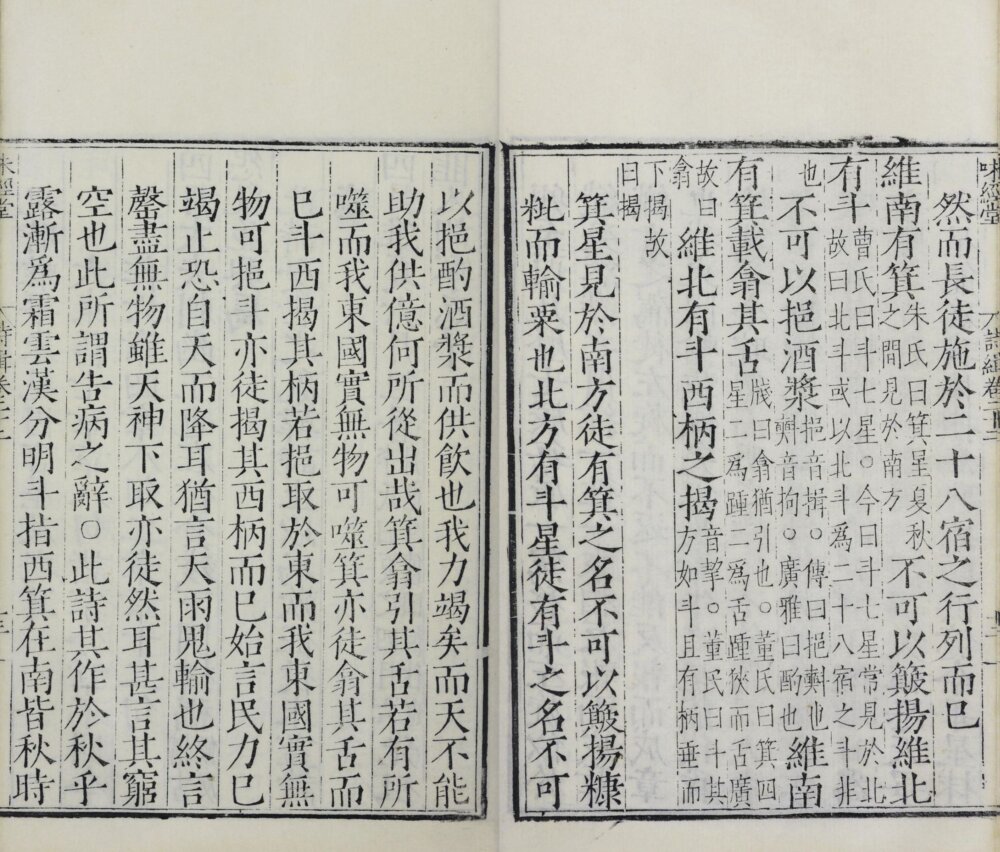 然而長徒施於二十八宿之行列而已
維南有箕朱氏曰箕星夏秋之間見於南方不可以簸揚維北
有斗曹氏曰斗七星○今曰斗七星常見於北故曰北斗或以北斗爲二十八宿之斗非
也不可以挹酒漿挹音揖○傳曰挹㪺也㪺音拘○廣雅曰酌也維南
有箕載翕其舌牋曰翕猶引也○董氏曰箕四星二爲踵二爲舌踵狹而舌廣
故曰翕維北有斗西柄之揭音挈○董氏曰斗其方如斗且有柄垂而
下揭故曰揭
箕星見於南方徒有箕之名不可以簸揚糠
粃而輸粟也北方有斗星徒有斗之名不可
以挹酌酒漿而供飲也我力竭矣而天不能
助我供億何所從出哉箕翕引其舌若有所
噬而我東國實無物可噬箕亦徒翕其舌而
已斗西揭其柄若挹取於東而我東國實無
物可挹斗亦徒揭其西柄而已始言民力已
竭止恐自天而降耳猶言天雨鬼輸也終言
罄盡無物雖天神下取亦徒然耳甚言其窮
空也此所謂告病之辭○此詩其作於秋乎
露漸爲霜雲漢分明斗指西箕在南皆秋時
味經堂
詩緝卷二十二